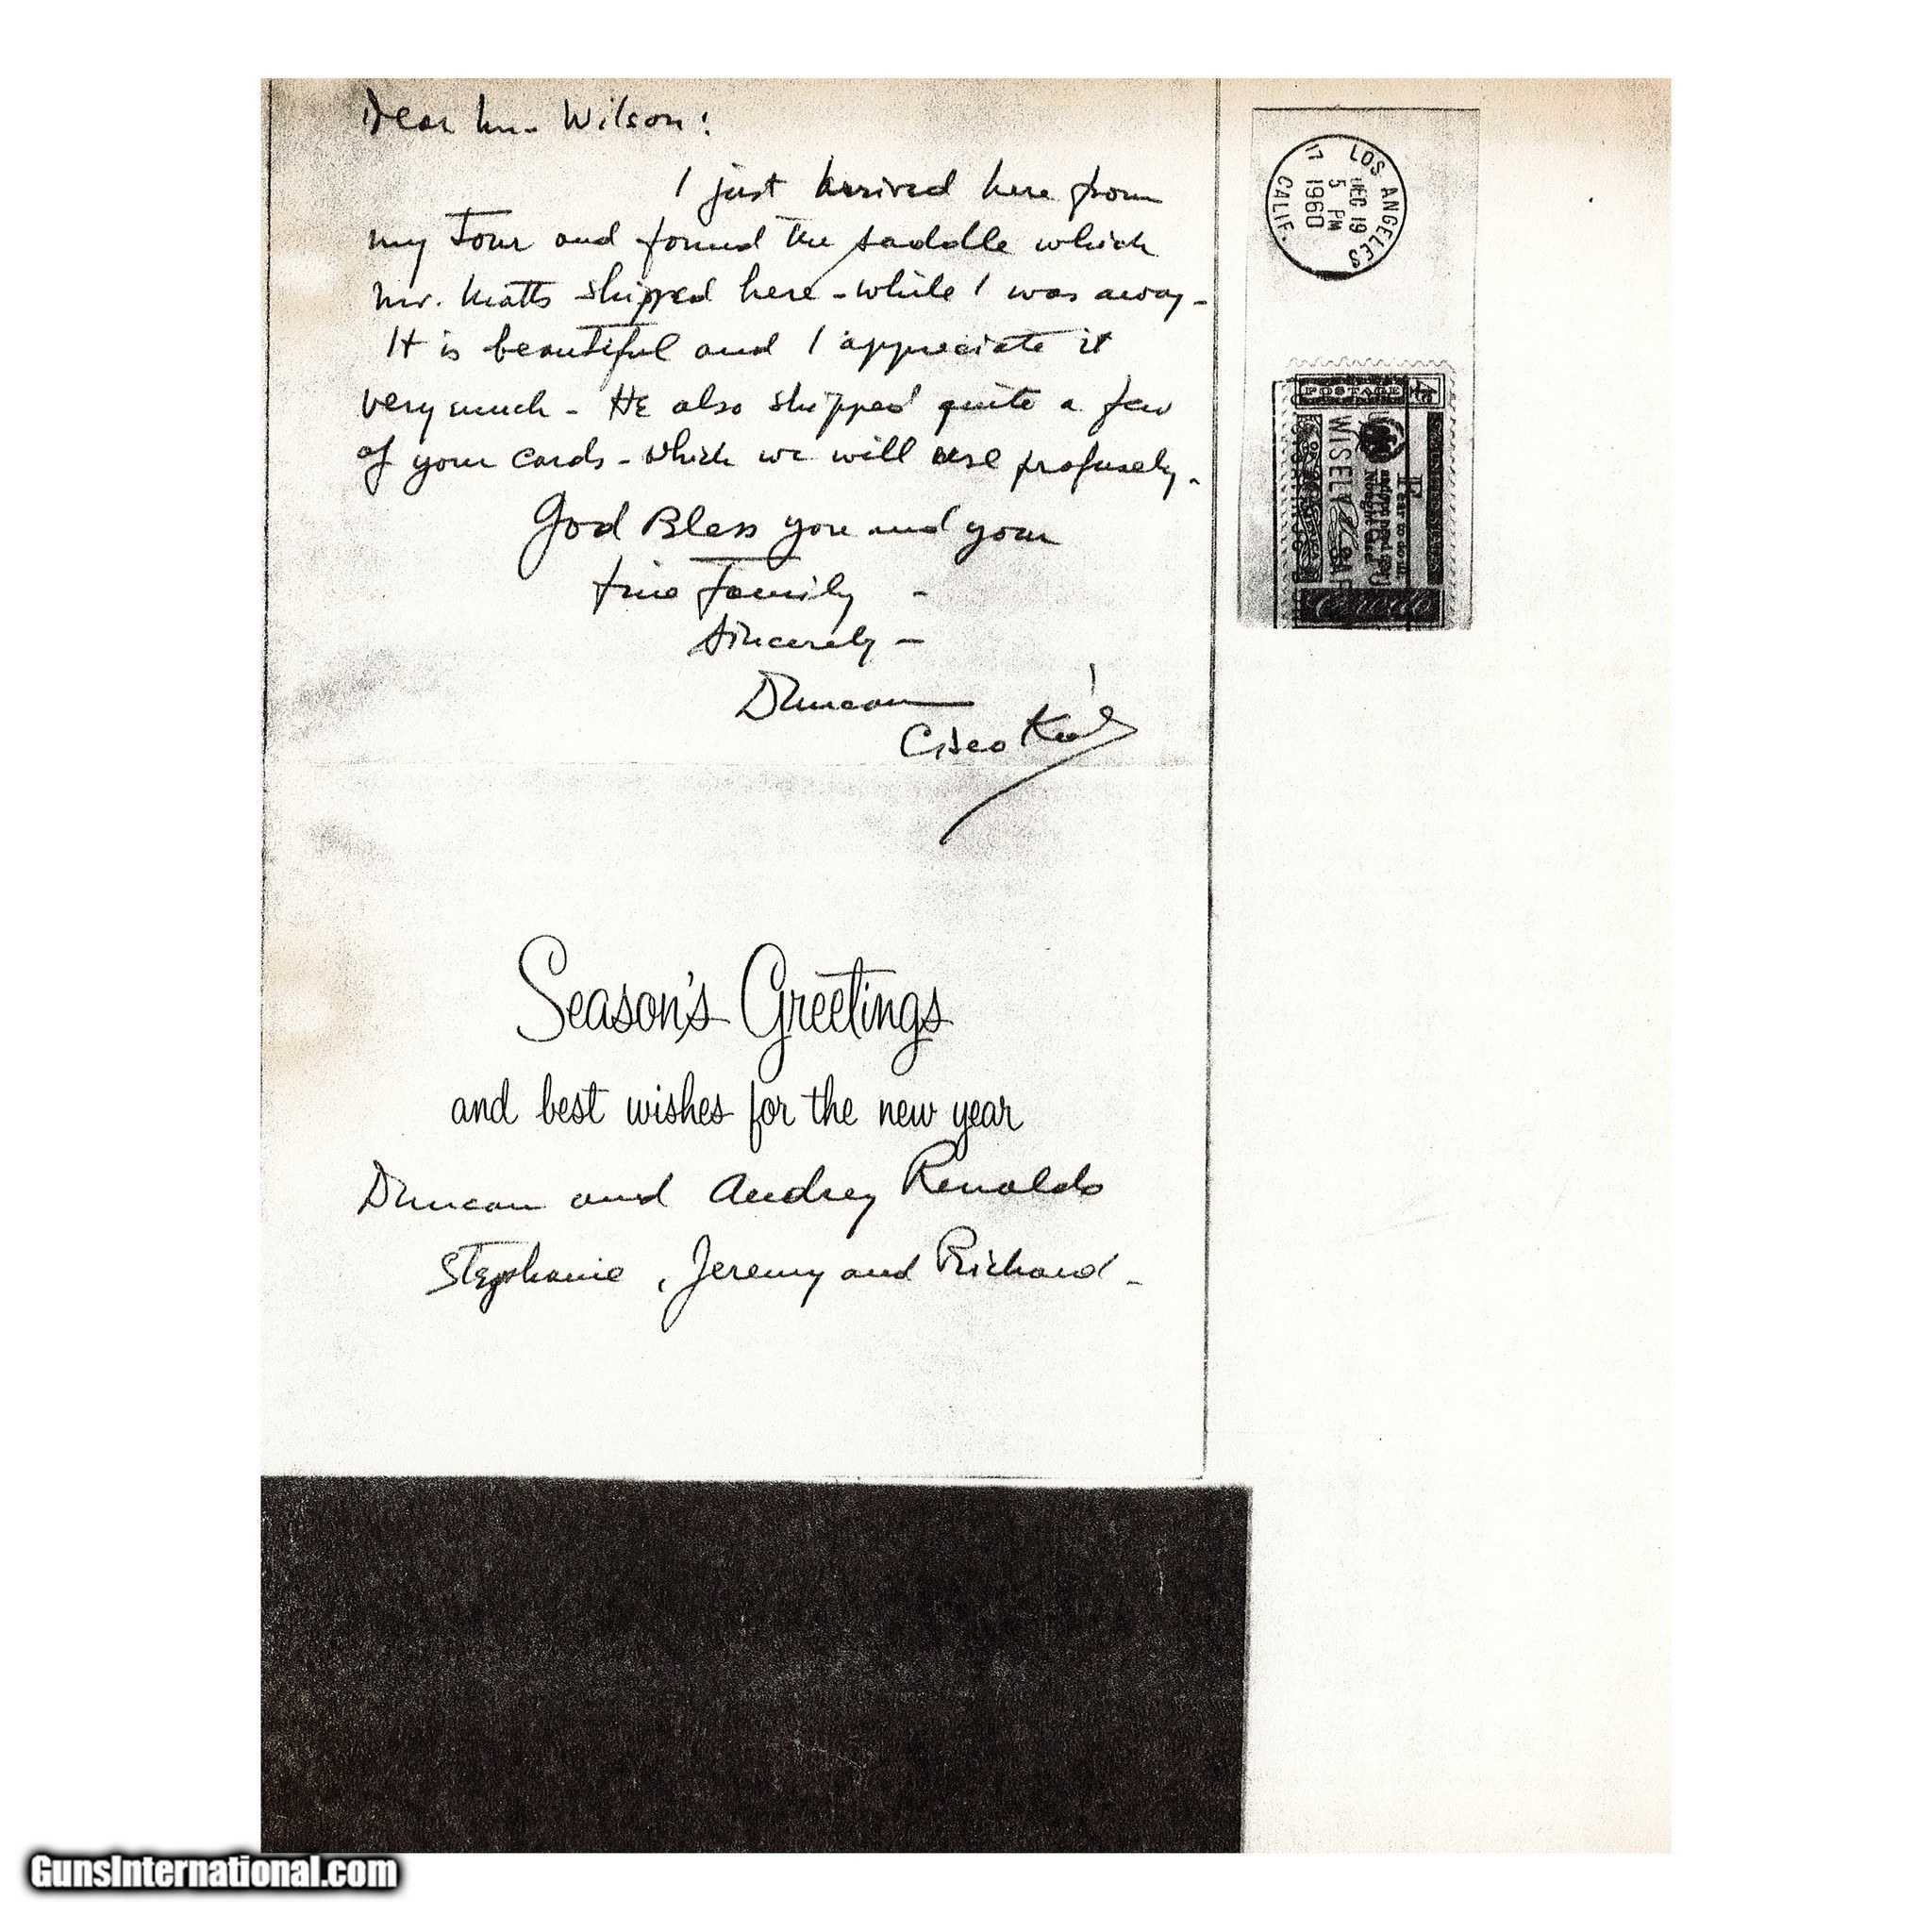 Dear Mr. Wilson:
I just arrived here from
my Tour and found the saddle which
Mr. Watts shipped here - while I was away -
It is beautiful and I appreciate it
very much - He also shipped quite a few
of your cards - which we will use profusely.
God Bless you and your
fine Family -
Sincerely -
Duncan
Cisco Kid
Season's Greetings
and best wishes for the new year
Duncan and Audrey Renaldo
Stephanie, Jeremy and Richard -
LOS ANGELES
17
DEC 19
5 PM
1960
CALIF.
POSTAGE 4¢
WISELY
GunsInternational.com